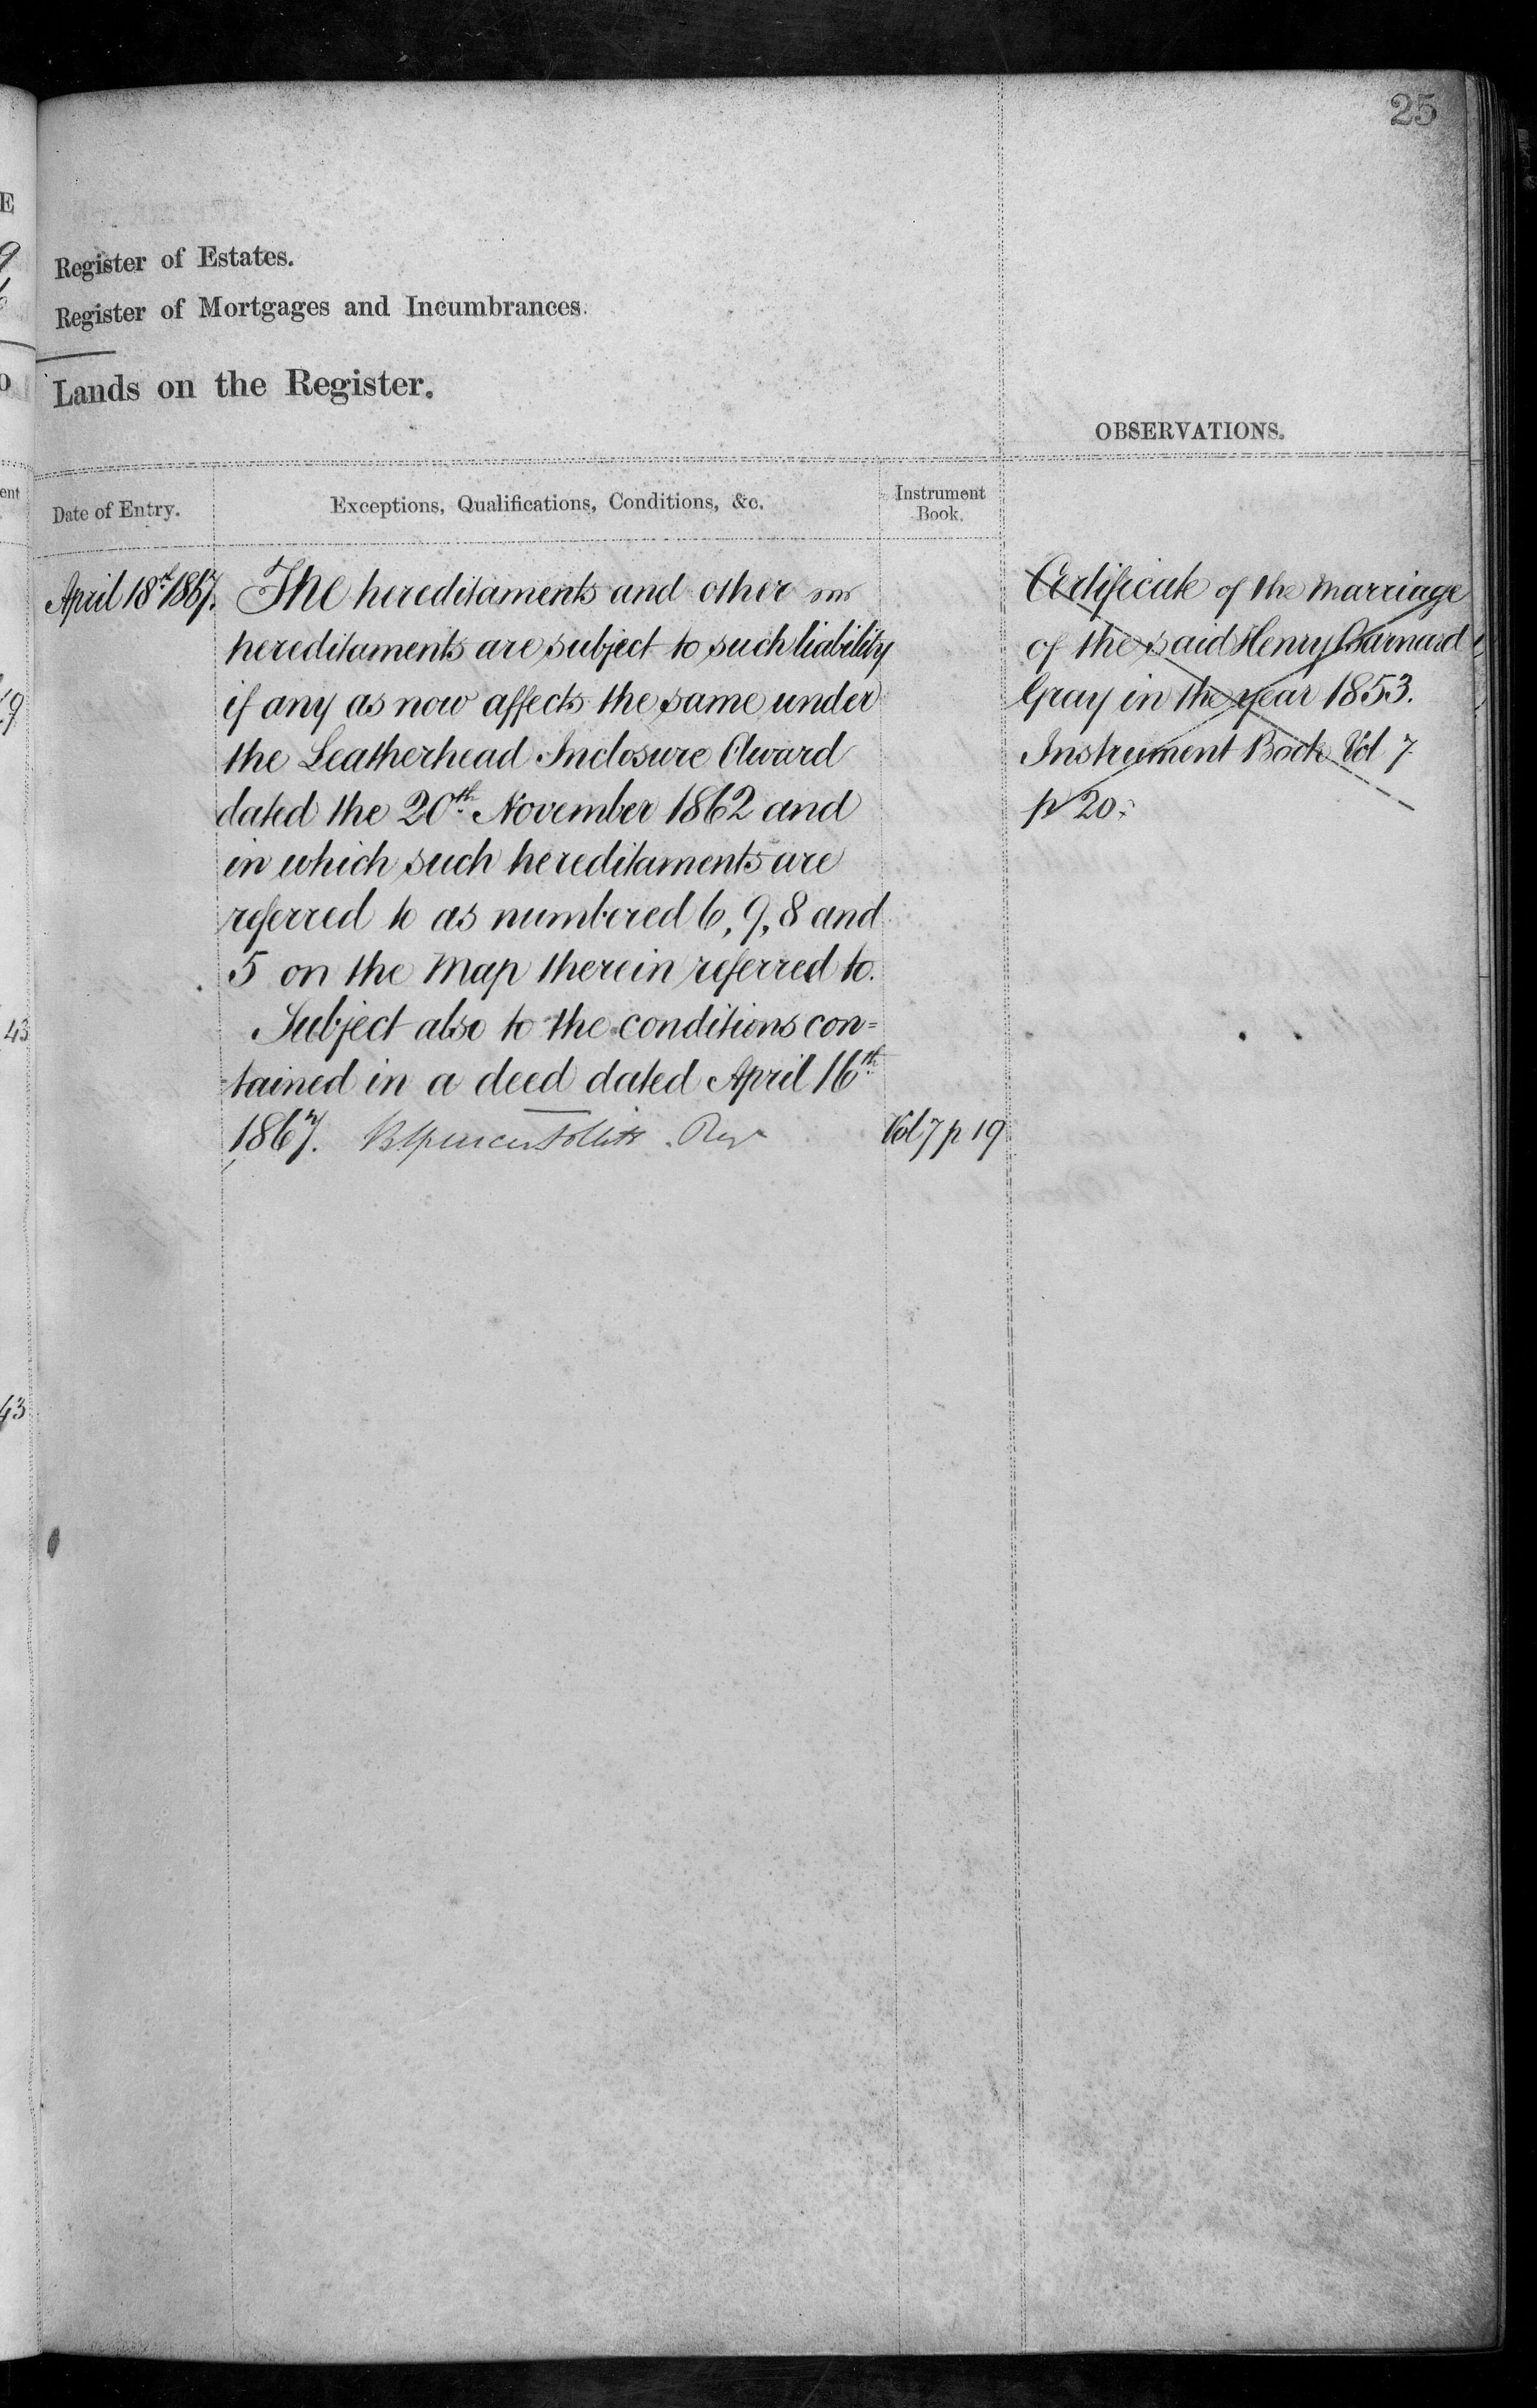 25
Register of Estates.
Register of Mortgages and Incumbrances.
Lands on the Register.
OBSERVATIONS.
Date of Entry.
Exceptions, Qualifications, Conditions, &c.
Instrument
Book.
April 18th 1867.
The hereditaments and other
hereditaments are subject to such liability
if any as now affects the same under
the Leatherhead Inclosure Award
dated the 20th November 1862 and
in which such hereditaments are
referred to as numbered 6, 9, 8 and
5 on the Map therein referred to.
Subject also to the conditions con=
=tained in a deed dated April 16th
1867. Brent Spencer Follett Regr
Vol 7 p 19
Certificate of the Marriage
of the said Henry Barnard
Gray in the year 1853.
Instrument Book Vol 7
p 20.
E
9
ent
19
43
43